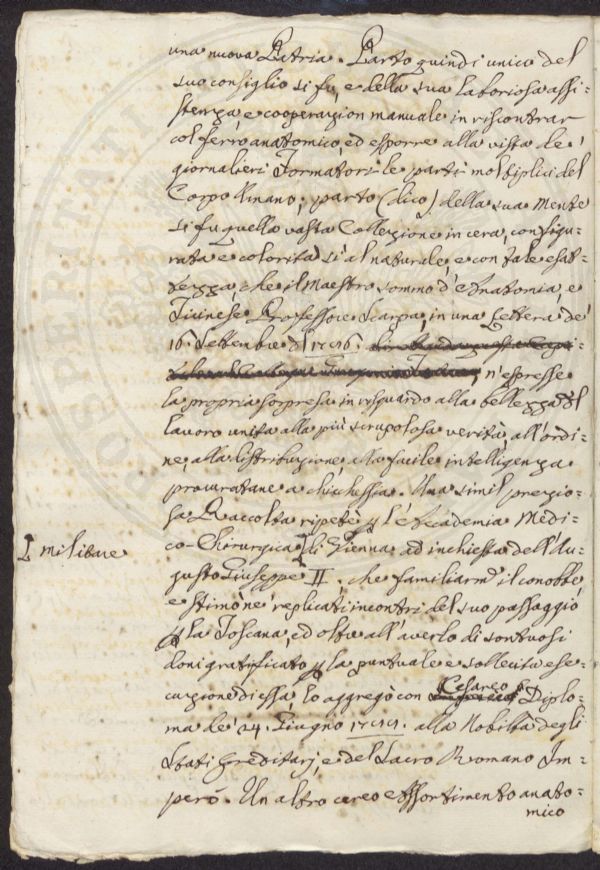 una nuova Patria. Parto quindi unico del
suo consiglio si fu, e della sua laboriosa assi=
stenza, e cooperazion manuale in riscontrar
col ferro anatomico, ed esporre alla vista de'
giornalieri Formatori le parti moltiplici del
Corpo Umano; parto (dico) della sua Mente
si fu quella vasta Collezione in cera, configu=
rata e colorita sì al naturale, e con tale esat=
tezza, che il Maestro sommo d'Anatomia, e
Ticinese Professore Scarpa, in una Lettera de'
16. Settembre d 1786. n'espresse
la propria sorpresa in risguardo alla bellezza del
lavoro unita alla più scrupolosa verità, all'ordi=
ne, alla distribuzione, alla facile intelligenza
procuratane a chichessia. Una simil prezio=
sa Raccolta ripetè p l'Accademia Medi=
co-Chirurgica di Vienna ad inchiesta dell'Au=
I militare
gusto Giuseppe II. che familiarm. il conobbe,
e stimò ne' replicati incontri del suo passaggio
p la Toscana, ed oltre all'averlo di sontuosi
doni gratificato p la puntuale e sollecita ese=
cuzione di essa, lo aggregò con Cesareo Diplo=
ma de' 24. Giugno alla Nobiltà degli
Stati Ereditarj, e del Sacro Romano Im=
pero. Un altro cereo Assortimento anato=
mico